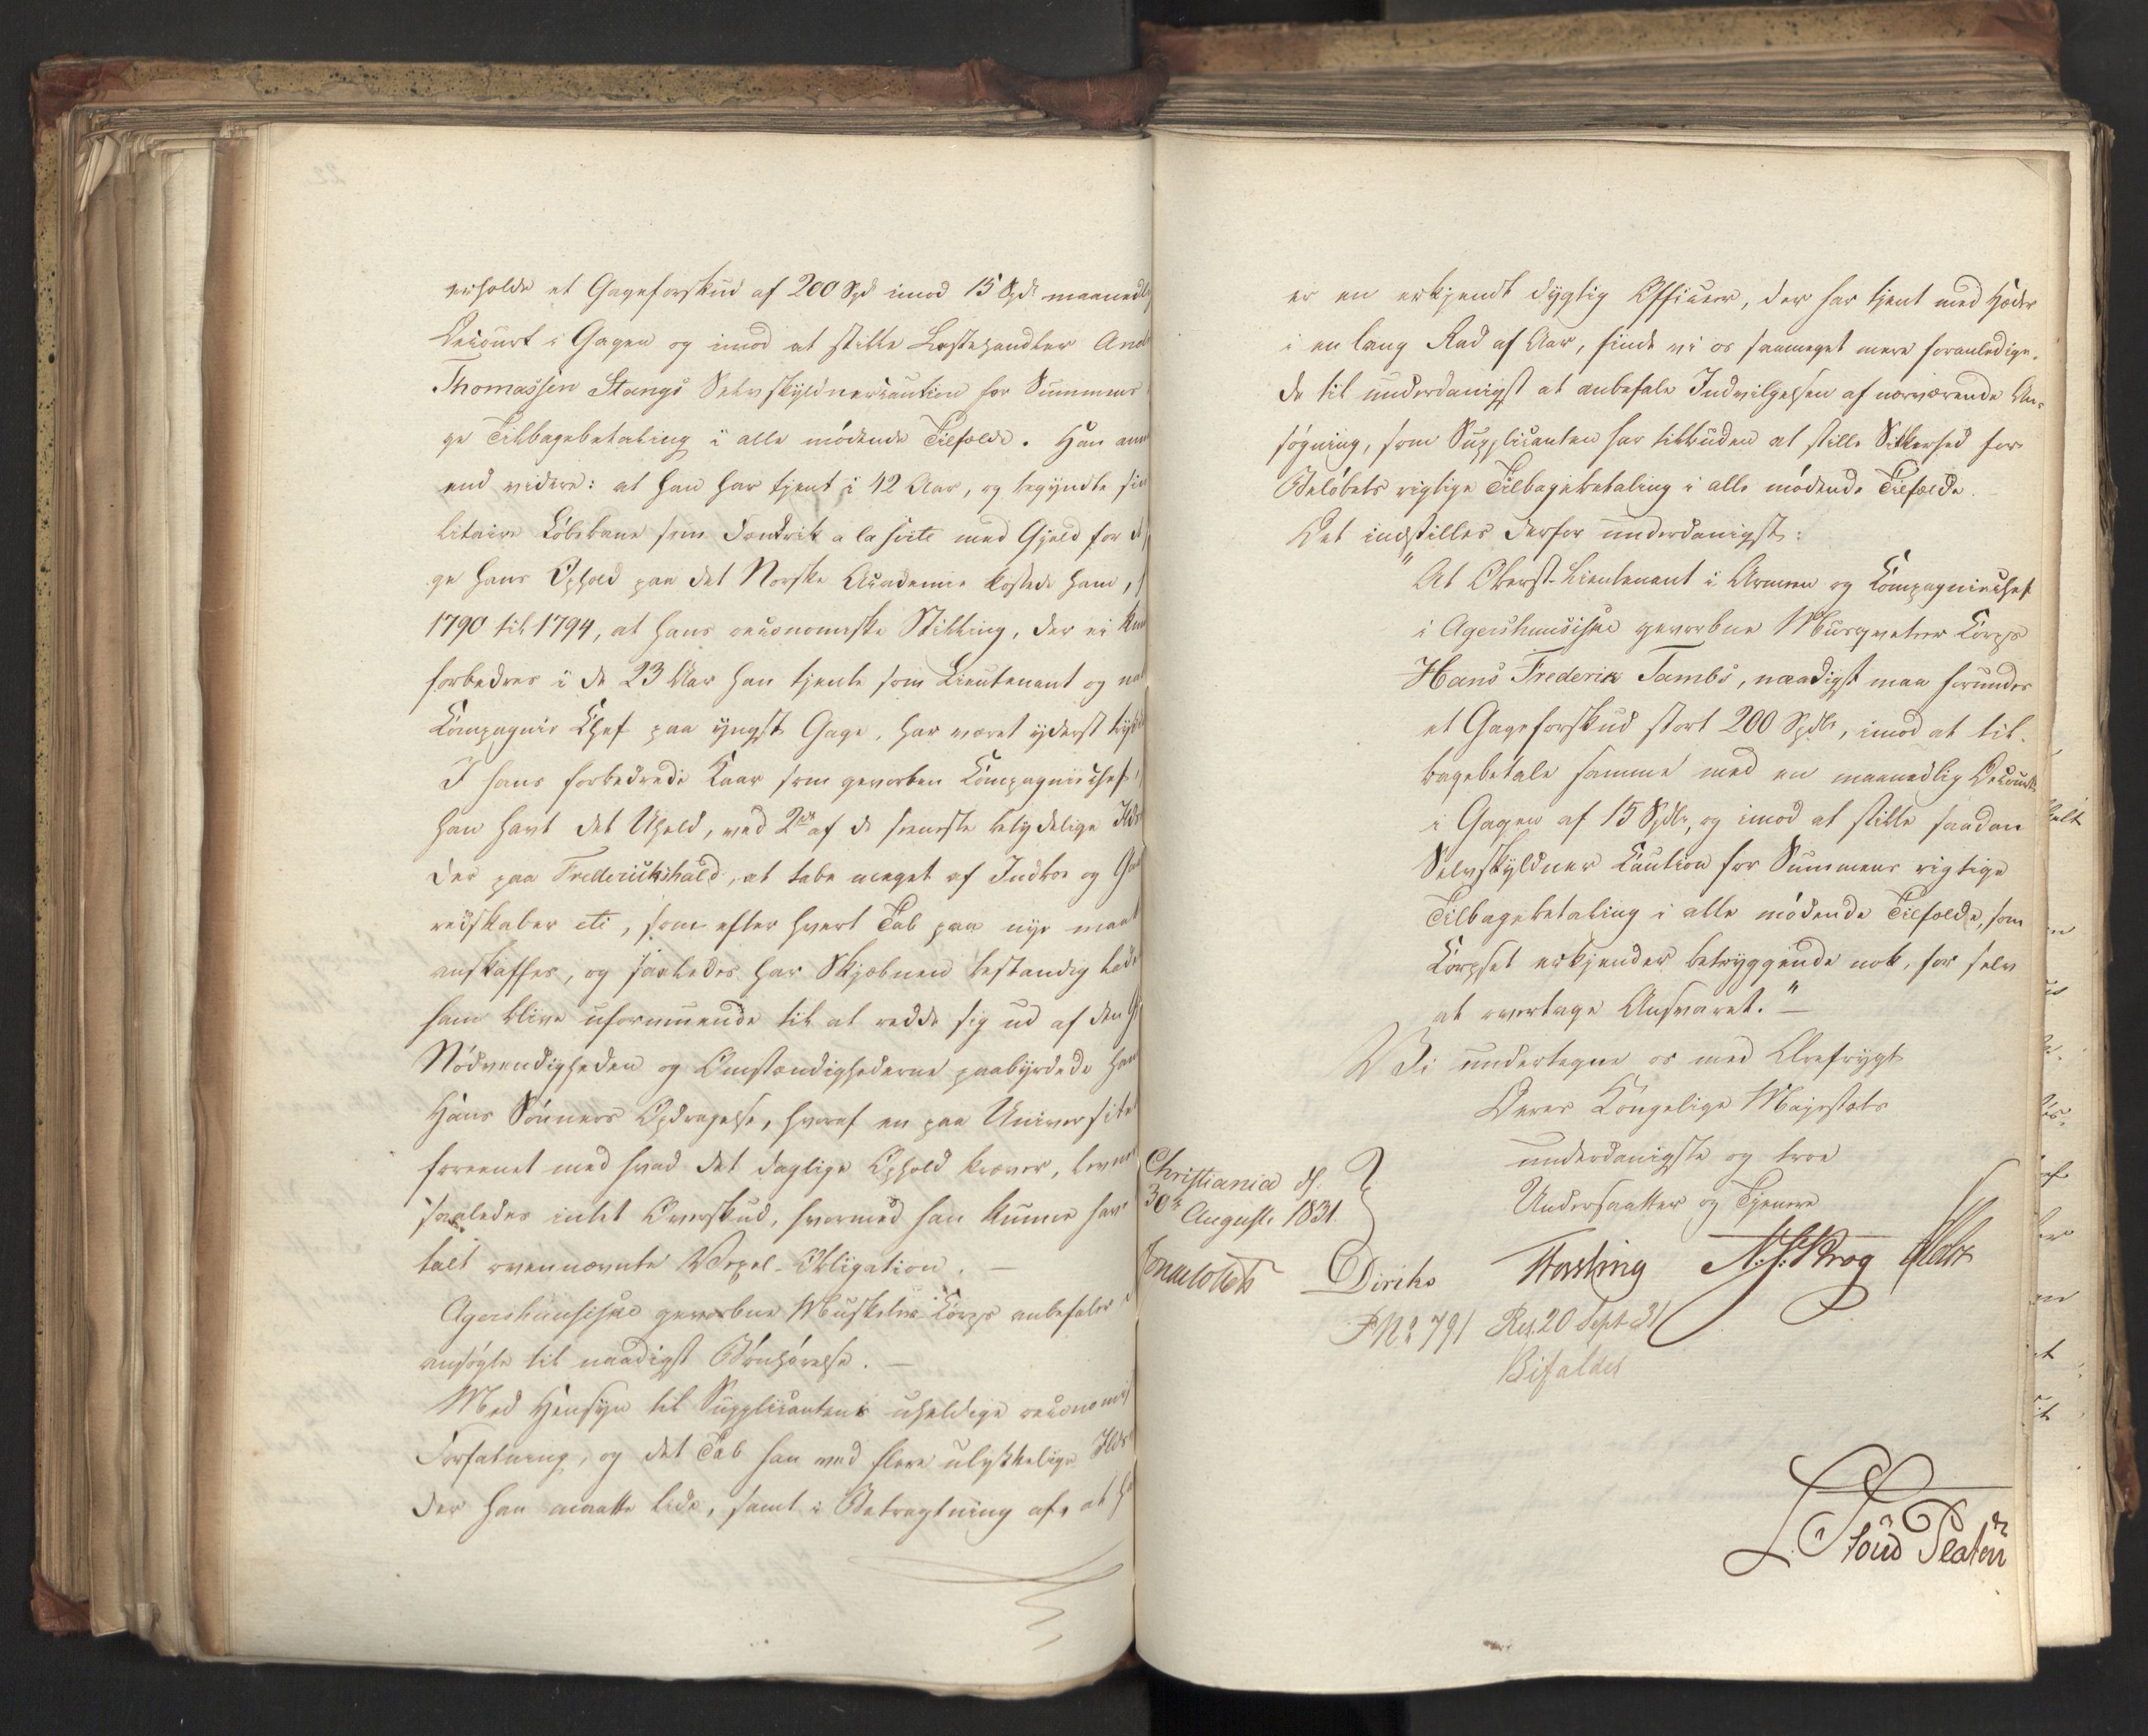 erholde et Gageforskud af 200 Spd imod 15 Spd maanedlig
Decourt i Gagen og imod at stille Lastehandler And
Thomassen Stangs Selvskyldnercaution for Summens
ge Tilbagebetaling i alle mødende Tilfælde. Han anm
end videre: at han har tjent i 42 Aar, og begyndte sin
litaire Løbebane som Landkadet a la suite med Gjeld for
ge hans Ophold paa det Norske Academie kostede ham,
1790 til 1794, at hans oeconomiske Stilling, der ei kun
forbedres i de 23 Aar han tjente som Lieutenant og nat
Compagnie Chef paa yngste Gage, har været yderst tryk
I hans forbedrede Kaar som gevorben Compagniechef,
han havt det Uheld, ved 2de af de seneste betydelige Ilds
der paa Frederickshald, at tabe meget af Indboe og
redskaber etc, som efter hvert Tab paa nye maat
anskaffes, og saaledes har Skjæbnen bestandig lad
ham blive uformuende til at redde sig ud af den Gj
Nødvendigheden og Omstændighederne paabyrdede ham
Hans Sønners Opdragelse, hvoraf en paa Universitet
foreenet med hvad det daglige Ophold kræver, levne
saaledes intet Overskud, hvormed han kunne have
talt ovennævnte Vexel-Obligation. —
Agershuusiske gevorbne Musketeer Corps anbefaler
ansøgte til naadigst Bønhørelse. —
Med Hensyn til Supplicantens uheldige oeconomis
Forfatning, og det Tab han ved flere ulykkelige Ilds
der han maatte lide, samt i Betragtning af, at h
er en erkjendt dygtig Officeer, der har tjent med Hæder
i en lang Rad af Aar, finde vi os saameget mere foranledige-
de til underdanigst at anbefale Indvilgelsen af nærværende An-
søgning, som Supplicanten har tilbuden at stille Sikkerhed for
Beløbets rigtige Tilbagebetaling i alle mødende Tilfælde.
Det indstilles derfor underdanigst:
"At Oberst-Lieutenant i Armeen og Compagniechef
i Agershuusiske gevorbne Musqueteer Corps
Hans Frederik Tambs, naadigst maa forundes
et Gageforskud stort 200 Spdlr, imod at til-
bagebetale samme med en maanedlig Decourt
i Gagen af 15 Spdlr, og imod at stille saadan
Selvskyldner Caution for Summens rigtige
Tilbagebetaling i alle mødende Tilfælde, som
Corpset erkjender betryggende nok, for selv
at overtage Ansvaret." —
Vi undertegne os med Ærefrygt
Deres Kongelige Majestæts
underdanigste og troe
Undersaatter og Tjenere
Christiania d:
30te August 1831.
Diriks N. J. Krog
P No 791 Res. 20 Sept 31
Bifaldes